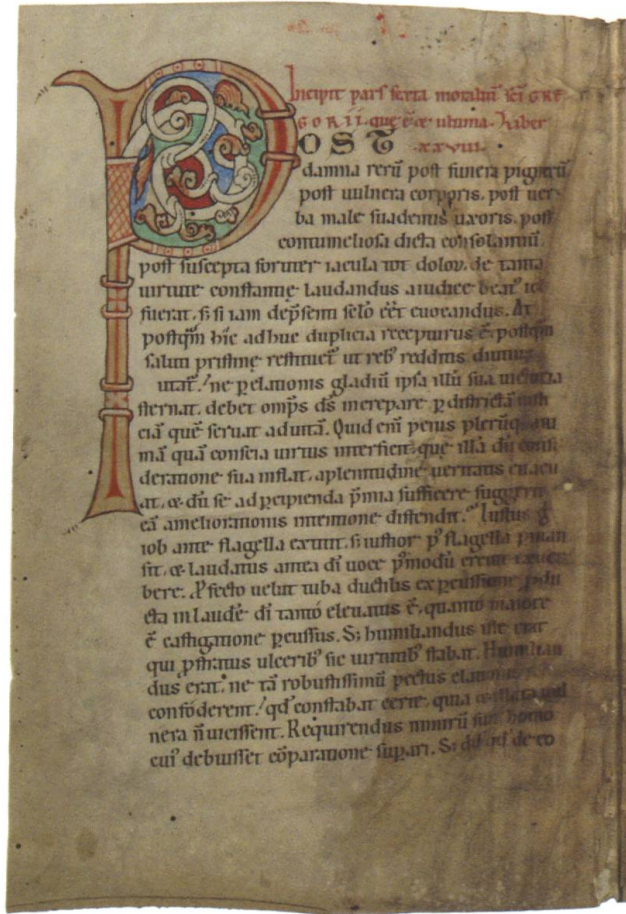 Incipit pars sexta moraliū sc̄i GRE
GORII. que ē & ultima. Liber
POST xxviii.
damna rerū post funera pignerū
post uulnera corporis. post uer
ba male suadentis uxoris. post
contumeliosa dicta consolantiū.
post suscepta fortiter iacula tot dolor̄. de tanta
uirtute constantie laudandus a iudice beatꝰ iob
fuerat. s; si iam de p̄senti sc̄lo eēt euocandus. At
postq̄m hic adhuc duplicia recepturus ē. postq̄m
saluti pristine restituet̄ ut rebꝰ redditis diutius
utat̄. ne p elationis gladiū ipsa illū sua uictoria
sternat. debet omp̄s d̄s increpare p districtā iusti
ciā quē seruat ad uitā. Quid eni peius plerūq; ani
mā quā conscia uirtus interficit. que illā dū consi
deratione sua inflat. a plenitudine ueritatis euacu
at. & dū se ad p̄cipienda p̄mia sufficere suggerit
eā ameliorationis intentione distendit. Iustus g̊
iob ante flagella extitit. s; iustior p̄ flagella p̄man
sit. & laudatus antea di uoce p̄modū creuit ex uer
bere. P̄fecto uelut tuba ductilis ex p̄cussione p̄du
cta in laudē di tanto eleuatus ē. quanto maiore
ē castigatione p̄cussus. S; humiliandus iste erat
qui p̄stratus ulceribꝰ sic uirtutibꝰ stabat. Humilian
dus erat. ne tā robustissimū pectus elationis
confoderent. qd̄ constabat certe. quia & illata uul
nera n̄ uicissent. Requirendus nimirū fuit homo
cuiꝰ debuisset cōparatione supari. S; qd̄ ē qd̄ de eo